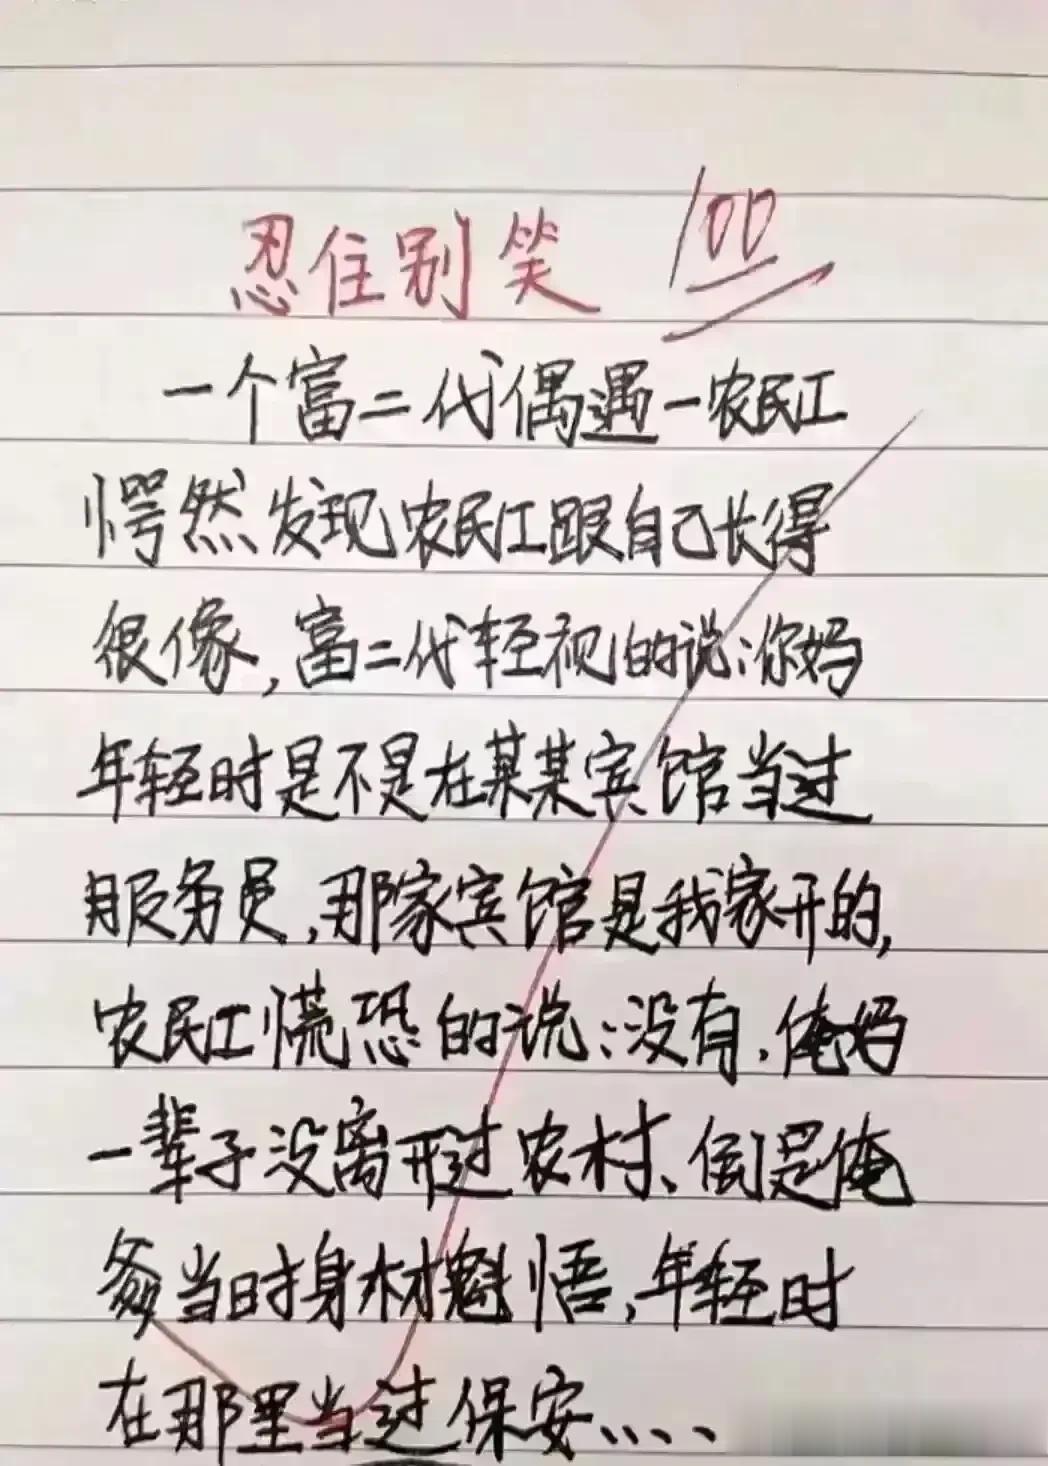 忍住别笑 100
一个富二代偶遇一农民工
愕然发现农民工跟自己长得
很像,富二代轻视的说:你妈
年轻时是不是在某某宾馆当过
服务员,那家宾馆是我家开的,
农民工慌恐的说:没有,俺妈
一辈子没离开过农村、倒是俺
爹当时身材魁悟,年轻时
在那里当过保安、、、、